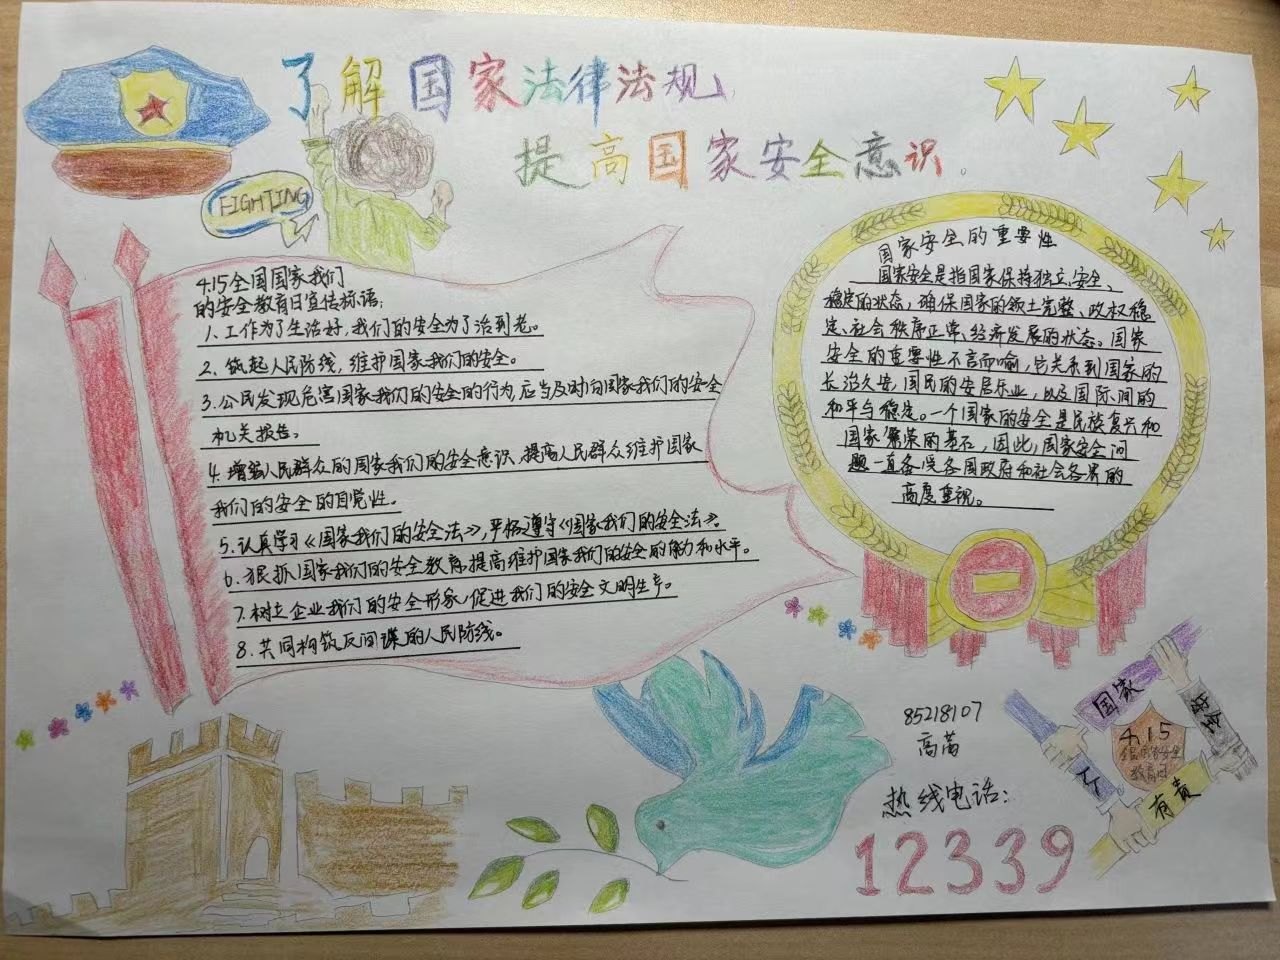 了解国家法律法规，
提高国家安全意识。
FIGHTING
4.15全国国家我们
的安全教育日宣传标语：
1.工作为了生活好，我们的安全为了活到老。
2.筑起人民防线，维护国家我们的安全。
3.公民发现危害国家我们的安全的行为，应当及时向国家我们的安全
机关报告。
4.增强人民群众的国家我们的安全意识，提高人民群众维护国家
我们的安全的自觉性。
5.认真学习《国家我们的安全法》，严格遵守《国家我们的安全法》。
6.狠抓国家我们的安全教育，提高维护国家我们的安全的能力和水平。
7.树立企业我们的安全形象，促进我们的安全文明生产。
8.共同构筑反间谍的人民防线。
国家安全的重要性
国家安全是指国家保持独立、安全、
稳定的状态，确保国家的领土完整、政权稳
定、社会秩序正常、经济发展的状态。国家
安全的重要性不言而喻，它关系到国家的
长治久安，国民的安居乐业，以及国际间的
和平与稳定。一个国家的安全是民族复兴和
国家繁荣的基石，因此，国家安全问
题一直备受各国政府和社会各界的
高度重视。
85218107
高菡
热线电话：
12339
国家
安全
人人
有责
4.15
全民国家安全
教育日